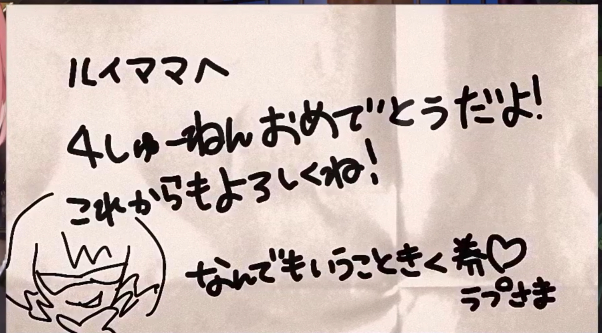 ルイママへ
4しゅーねんおめでとうだよ!
これからもよろしくね!
なんでもいうこときく券♡
ラプさま